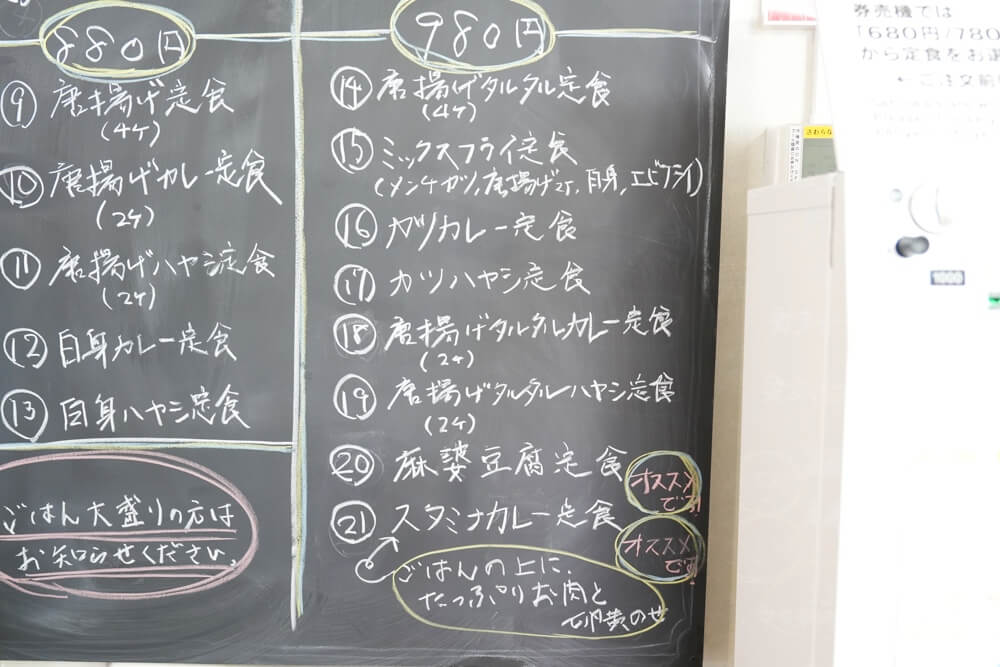 880円
⑨ 唐揚げ定食
(4ケ)
⑩ 唐揚げカレー定食
(2ケ)
⑪ 唐揚げハヤシ定食
(2ケ)
⑫ 白身カレー定食
⑬ 白身ハヤシ定食
ごはん大盛りの方は
お知らせください。
980円
⑭ 唐揚げタルタル定食
(4ケ)
⑮ ミックスフライ定食
(メンチカツ,唐揚げ2ケ,白身,エビフライ)
⑯ カツカレー定食
⑰ カツハヤシ定食
⑱ 唐揚げタルタルカレー定食
(2ケ)
⑲ 唐揚げタルタルハヤシ定食
(2ケ)
⑳ 麻婆豆腐定食
オススメ
です!
㉑ スタミナカレー定食
オススメ
です!
ごはんの上に、
たっぷりお肉と
卵黄のせ
券売機では
「680円/780
から定食をお選
← ご注文前
さわらな
1000